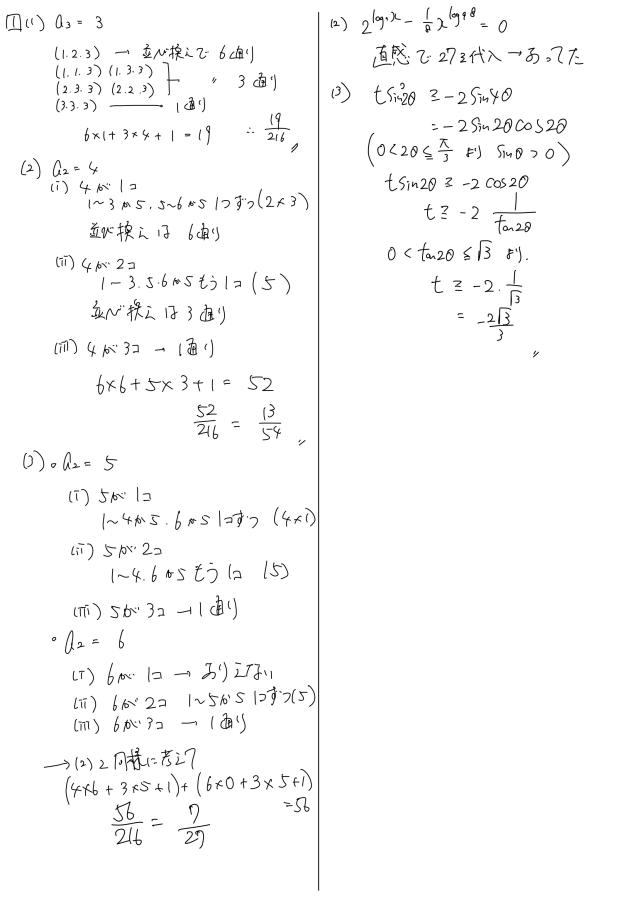 1 (1) a₃ = 3
(1.2.3) → 並び換えで 6通り
(1.1.3) (1.3.3)
(2.3.3) (2.2.3) 〃 3通り
(3.3.3) ―― 1通り
6×1+3×4+1=19 ∴ 19/216 〃
(2) a₂=4
(i) 4が1コ
1~3から、5~6から1コずつ(2×3)
並び換えは 6通り
(ii) 4が2コ
1~3.5.6からもう1コ (5)
並び換えは 3通り
(iii) 4が3コ → 1通り
6×6+5×3+1= 52
52/216 = 13/54 〃
(3) ・a₂= 5
(i) 5が1コ
1~4から5.6から1コずつ (4×1)
(ii) 5が2コ
1~4.6からもう1コ (5)
(iii) 5が3コ → 1通り
・a₂= 6
(i) 6が1コ → ありえない
(ii) 6が2コ 1~5から1コずつ(5)
(iii) 6が3コ → 1通り
→(2)と同様に考えて
(4×6+3×5+1)+(6×0+3×5+1)
=56
56/216 = 7/27
(2) 2^{log₄x} - 1/8 x^{log₉8} = 0
直感で27を代入→あってた
(3) t sin²2θ ≧ -2 sin4θ
= -2 sin2θcos2θ
(0<2θ≦π/3 より sinθ>0)
t sin2θ ≧ -2 cos2θ
t ≧ -2 1/tan2θ
0<tan2θ≦√3 より.
t ≧ -2・1/√3
= -2√3/3
〃